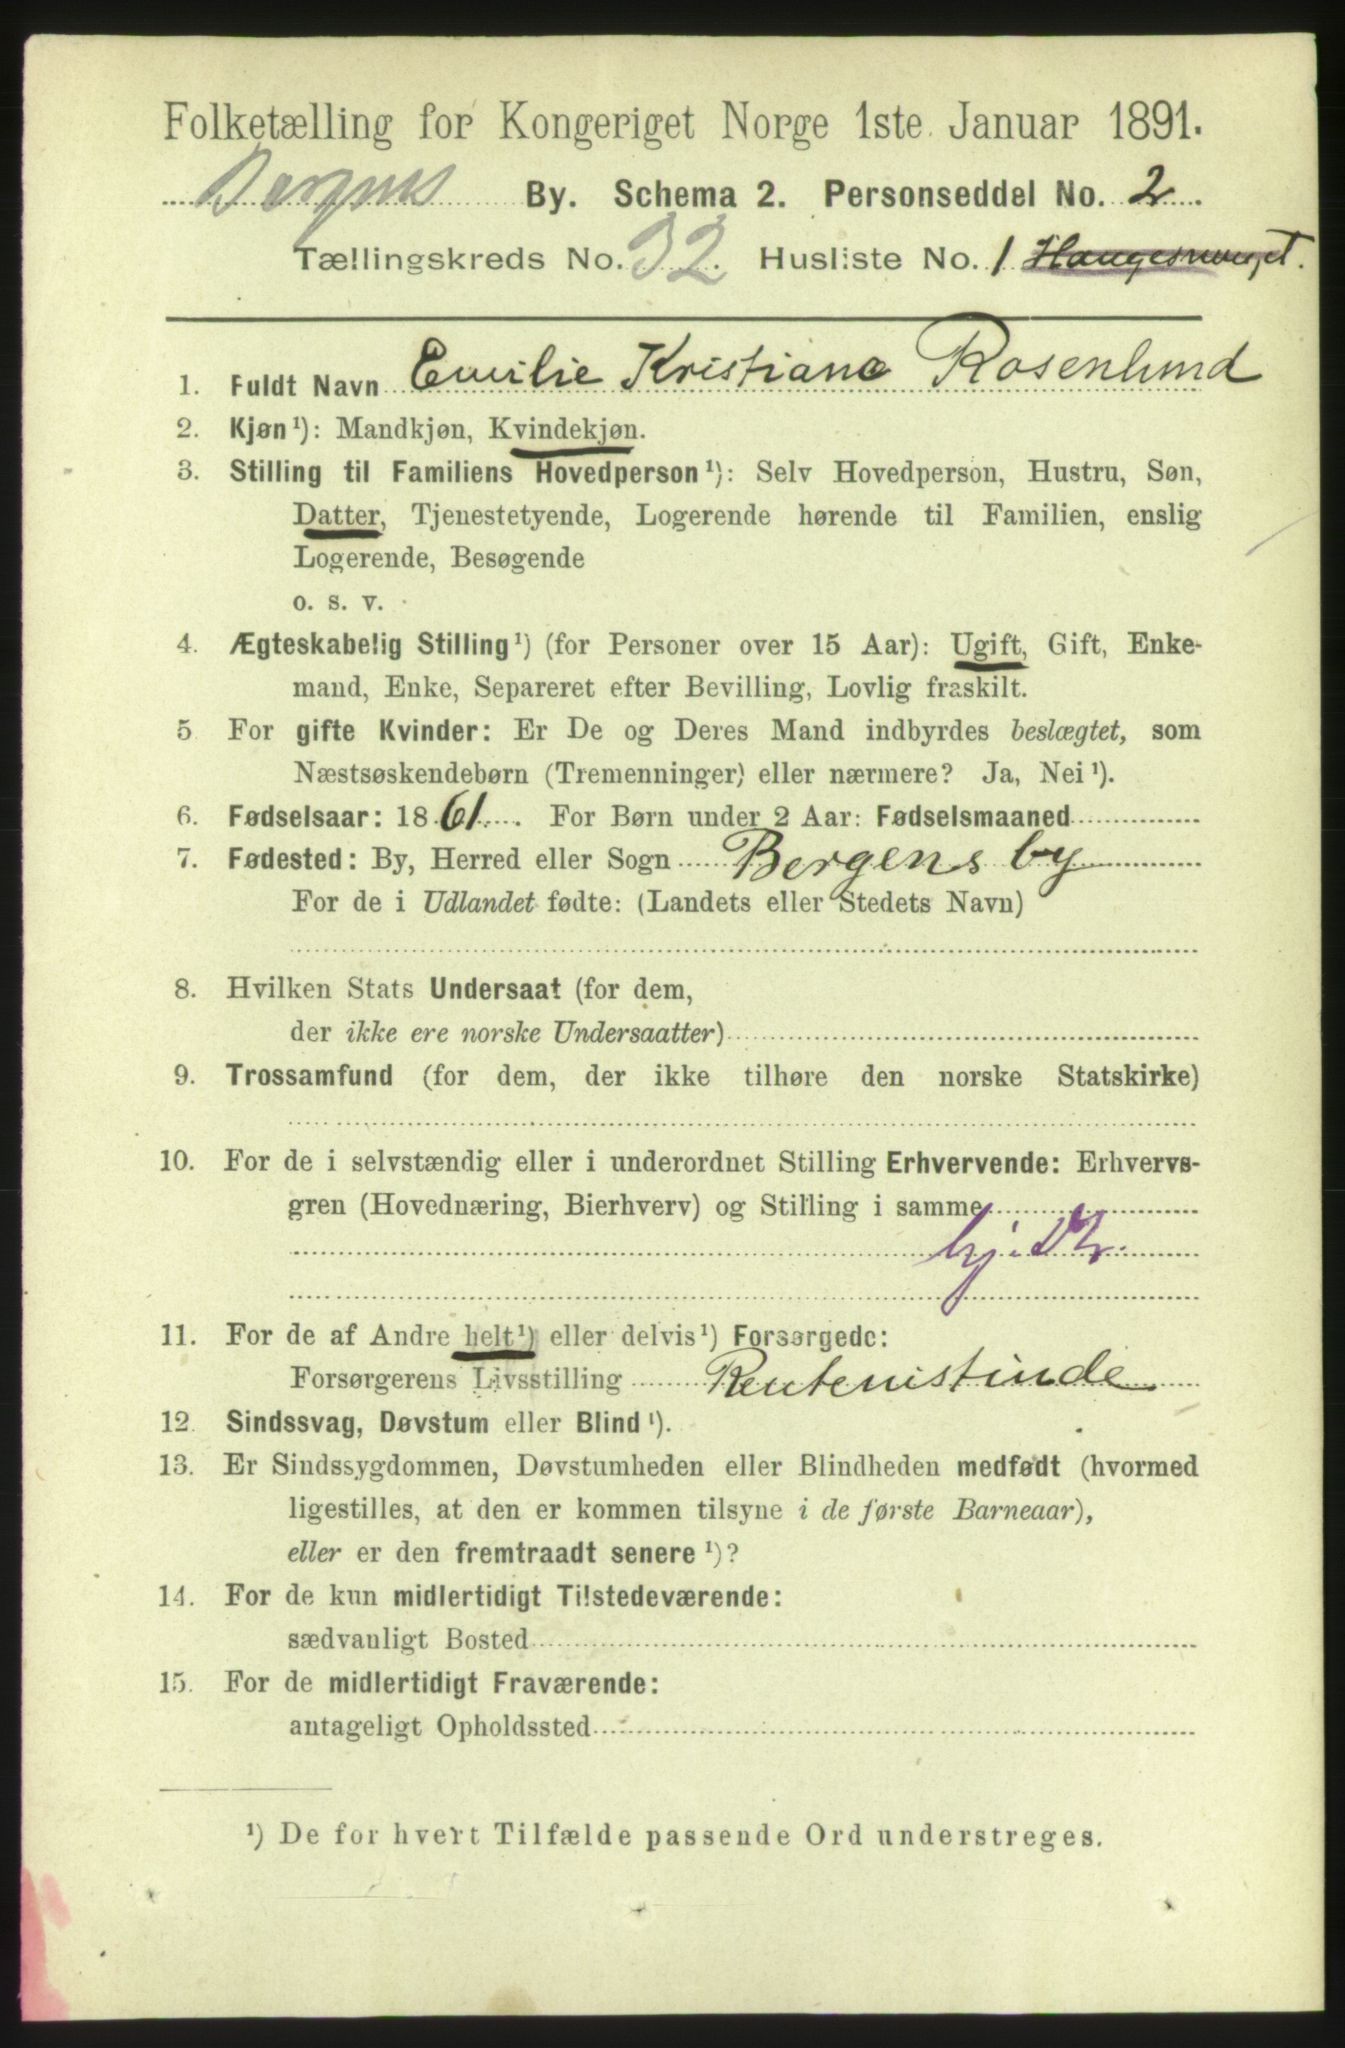 Folketælling for Kongeriget Norge 1ste Januar 1891.
Bergens By. Schema 2. Personseddel No. 2.
Tællingskreds No. 32. Husliste No. 1
1. Fuldt Navn Emilie Kristiane Rosenlund
2. Kjøn ¹): Mandkjøn, Kvindekjøn.
3. Stilling til Familiens Hovedperson ¹): Selv Hovedperson, Hustru, Søn,
Datter, Tjenestetyende, Logerende hørende til Familien, enslig
Logerende, Besøgende
o. s. v.
4. Ægteskabelig Stilling ¹) (for Personer over 15 Aar): Ugift, Gift, Enke-
mand, Enke, Separeret efter Bevilling, Lovlig fraskilt.
5 For gifte Kvinder: Er De og Deres Mand indbyrdes beslægtet, som
Næstsøskendebørn (Tremenninger) eller nærmere? Ja, Nei ¹).
6. Fødselsaar: 1861. For Børn under 2 Aar: Fødselsmaaned
7. Fødested: By, Herred eller Sogn Bergens by
For de i Udlandet fødte: (Landets eller Stedets Navn)
8. Hvilken Stats Undersaat (for dem,
der ikke ere norske Undersaatter)
9. Trossamfund (for dem, der ikke tilhøre den norske Statskirke)
10. For de i selvstændig eller i underordnet Stilling Erhvervende: Erhvervs-
gren (Hovednæring, Bierhverv) og Stilling i samme
11. For de af Andre helt ¹) eller delvis ¹) Forsørgede:
Forsørgerens Livsstilling Rentenistinde
12. Sindssvag, Døvstum eller Blind ¹).
13. Er Sindssygdommen, Døvstumheden eller Blindheden medfødt (hvormed
ligestilles, at den er kommen tilsyne i de første Barneaar),
eller er den fremtraadt senere ¹)?
14. For de kun midlertidigt Tilstedeværende:
sædvanligt Bosted
15. For de midlertidigt Fraværende:
antageligt Opholdssted
¹) De for hvert Tilfælde passende Ord understreges.